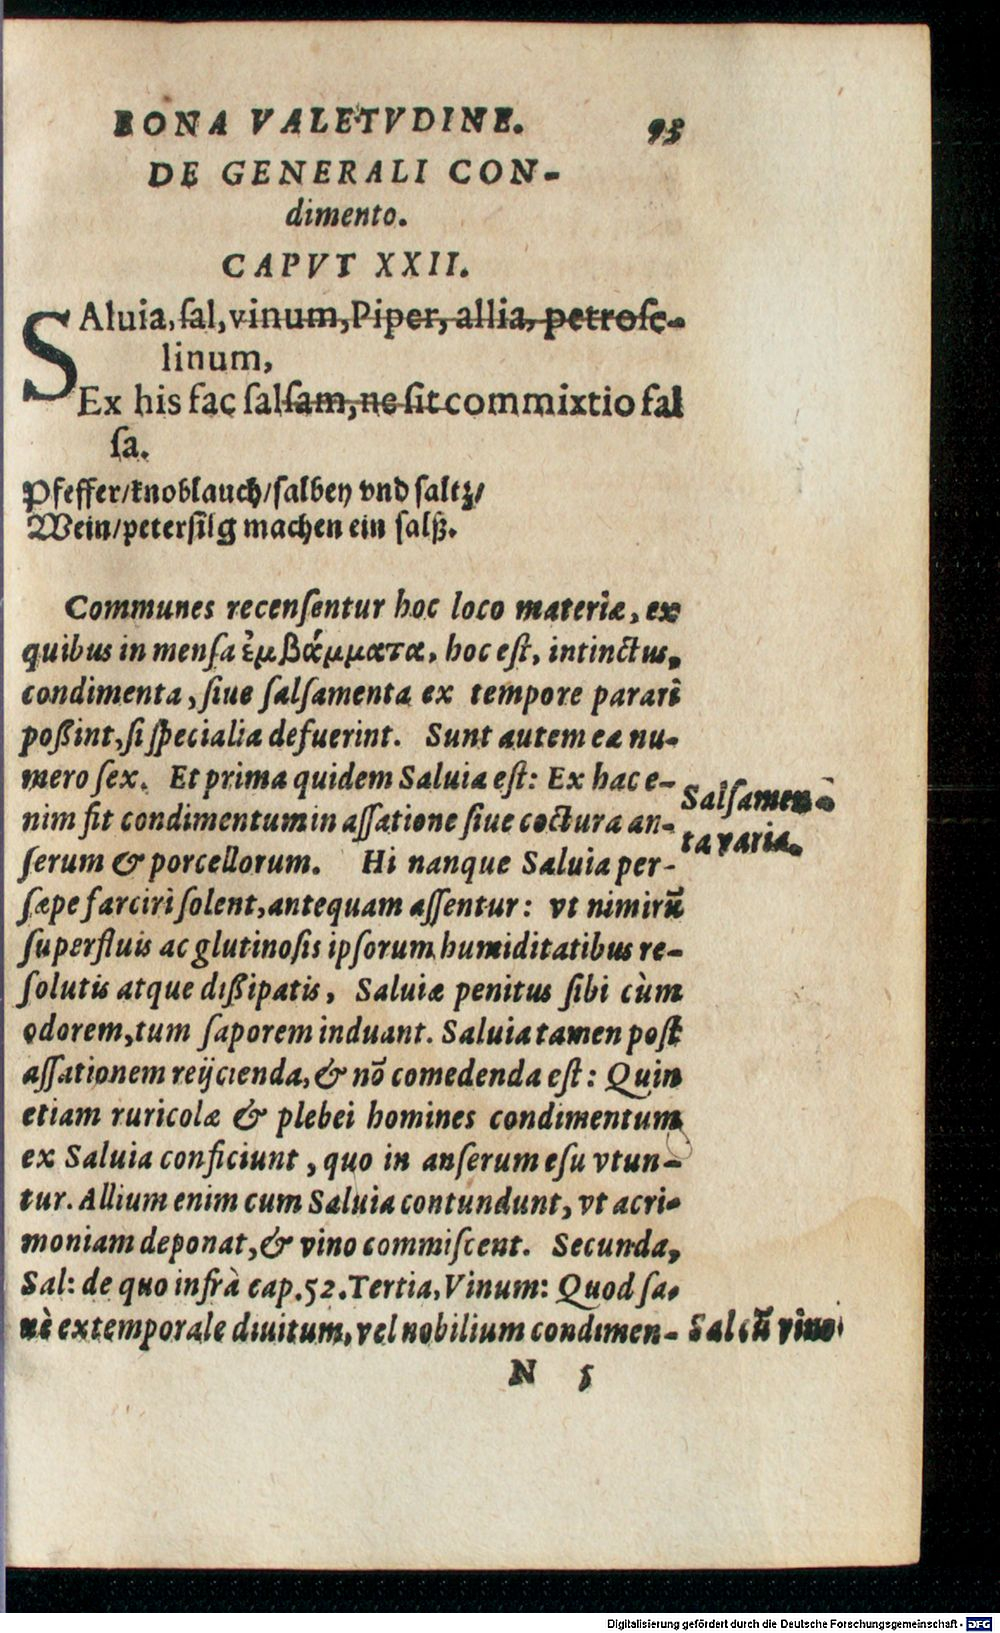 BONA VALETVDINE. 95
DE GENERALI CON-
dimento.
CAPVT XXII.
SAluia, ſal, vinum, Piper, allia, petroſe-
linum,
Ex his fac ſalſam, ne ſit commixtio fal
ſa.
Pfeffer/knoblauch/ſalbey vnd ſaltz/
Wein/peterſilg machen ein ſalß.
Communes recenſentur hoc loco materiæ, ex
quibus in menſa ἐμβάμματα, hoc eſt, intinctus,
condimenta, ſiue ſalſamenta ex tempore parari
poßint, ſi ſpecialia defuerint. Sunt autem ea nu-
mero ſex. Et prima quidem Saluia eſt: Ex hac e-
nim fit condimentum in aſſatione ſiue coctura an-
ſerum & porcellorum. Hi nanque Saluia per-
ſæpe farciri ſolent, antequam aſſentur: vt nimirū
ſuperfluis ac glutinoſis ipſorum humiditatibus re-
ſolutis atque dißipatis, Saluiæ penitus ſibi cùm
odorem, tum ſaporem induant. Saluia tamen poſt
aſſationem reijcienda, & nō comedenda eſt: Quin
etiam ruricolæ & plebei homines condimentum
ex Saluia conficiunt, quo in anſerum eſu vtun-
tur. Allium enim cum Saluia contundunt, vt acri-
moniam deponat, & vino commiſcent. Secunda,
Sal: de quo infrà cap. 52. Tertia, Vinum: Quod ſa-
nè extemporale diuitum, vel nobilium condimen-
N 5
Salſamen-
ta varia.
Sal cū vino
Digitalisierung gefördert durch die Deutsche Forschungsgemeinschaft - DFG